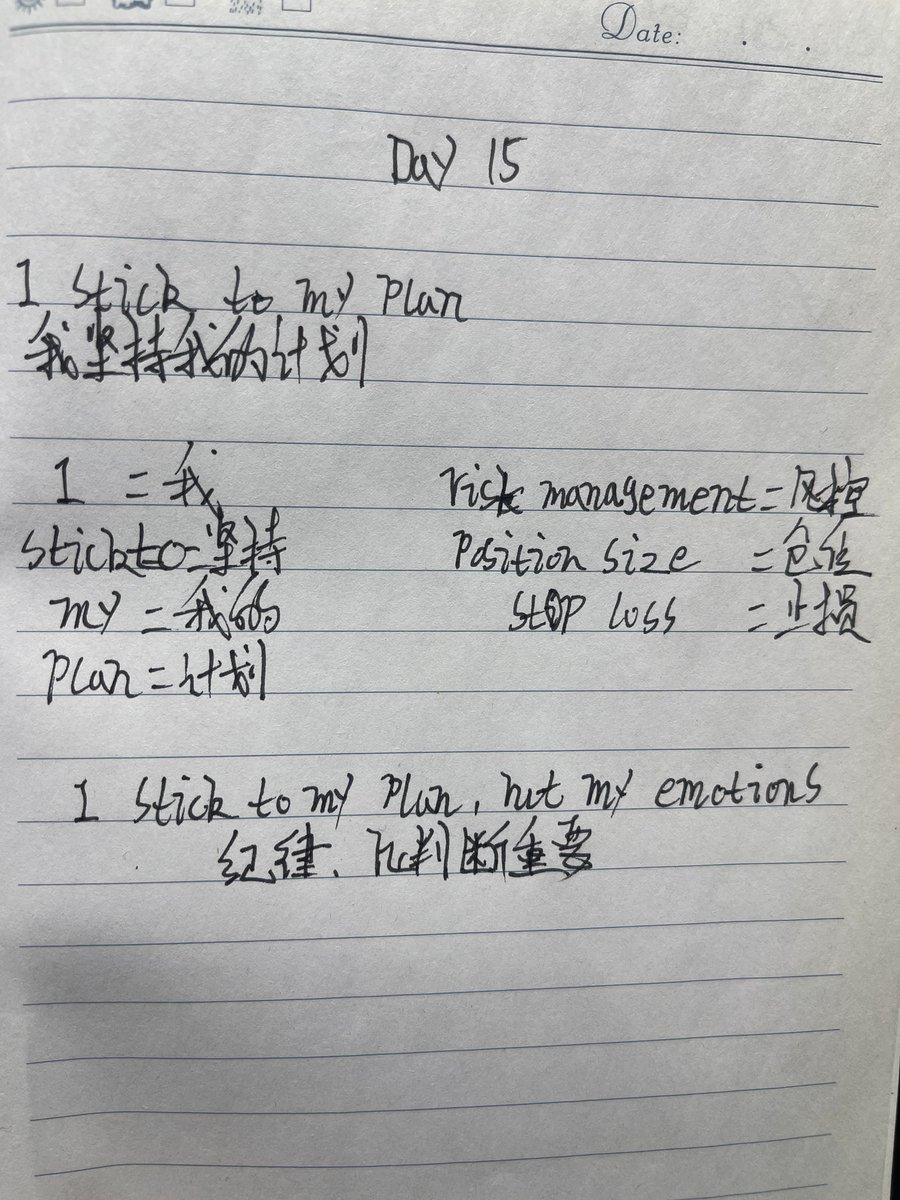 Date:
Day 15
I stick to my plan
我坚持我的计划
I = 我
stick to = 坚持
my = 我的
plan = 计划
risk management = 风控
Position size = 仓位
stop loss = 止损
I stick to my plan, not my emotions
纪律、比判断重要